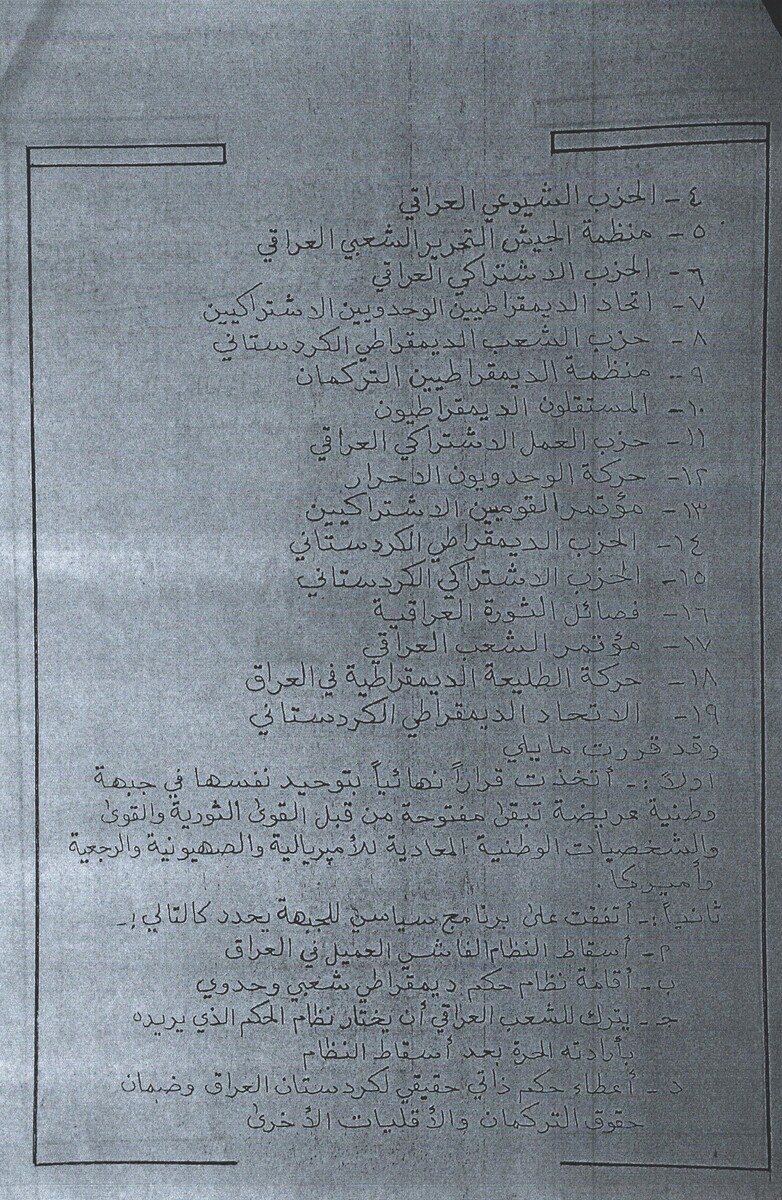 ٤- الحزب الشيوعي العراقي
٥- منظمة الجيش التحرير الشعبي العراقي
٦- الحزب الاشتراكي العراقي
٧- اتحاد الديمقراطيين الوحدويين الاشتراكيين
٨- حزب الشعب الديمقراطي الكردستاني
٩- منظمة الديمقراطيين التركمان
١٠- المستقلون الديمقراطيون
١١- حزب العمل الاشتراكي العراقي
١٢- حركة الوحدويون الاحرار
١٣- مؤتمر القوميين الاشتراكيين
١٤- الحزب الديمقراطي الكردستاني
١٥- الحزب الاشتراكي الكردستاني
١٦- فصائل الثورة العراقية
١٧- مؤتمر الشعب العراقي
١٨- حركة الطليعة الديمقراطية في العراق
١٩- الاتحاد الديمقراطي الكردستاني
وقد قررت مايلي
اولاً :- أتخذت قراراً نهائياً بتوحيد نفسها في جبهة
وطنية عريضة تبقى مفتوحة من قبل القوى الثورية والقوى
والشخصيات الوطنية المعادية للأمبريالية والصهيونية والرجعية
بأميركا .
ثانياً :- أتفقت على برنامج سياسي للجبهة يحدد كالتالي :-
م- أسقاط النظام الفاشي العميل في العراق
ب- أقامة نظام حكم ديمقراطي شعبي وحدوي
جـ- يترك للشعب العراقي أن يختار نظام الحكم الذي يريده
بأرادته الحرة بعد أسقاط النظام
د- أعطاء حكم ذاتي حقيقي لكردستان العراق وضمان
حقوق التركمان والأقليات الأخرى